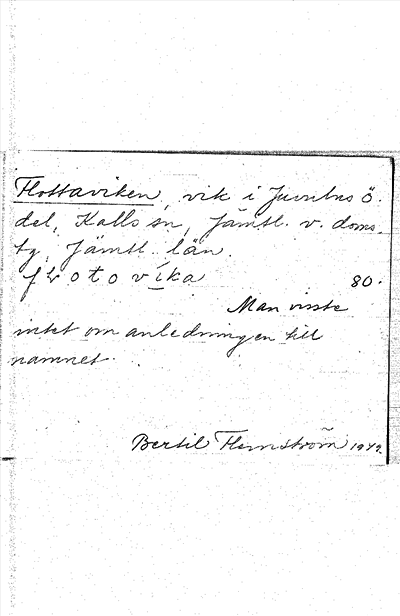 Flottaviken, vik i Juvulns ö.
del, Kalls sn, Jämtl. v. doms.
tg, Jämtl. län.
flotovika 80.
Man visste
intet om anledningen till
namnet.
Bertil Flemström 1949.